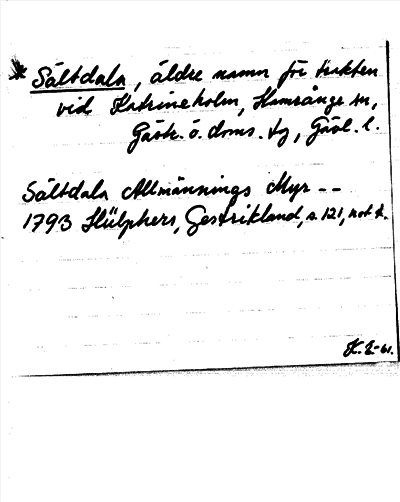 * Sältdala, äldre namn för trakten
vid Katrineholm, Hamrånge sn,
Gästr. ö. doms. tg, Gävl. l.
Sältdala Allmännings Myr --
1793 Hülphers, Gestrikland, s. 121, not k.
K. E-61.